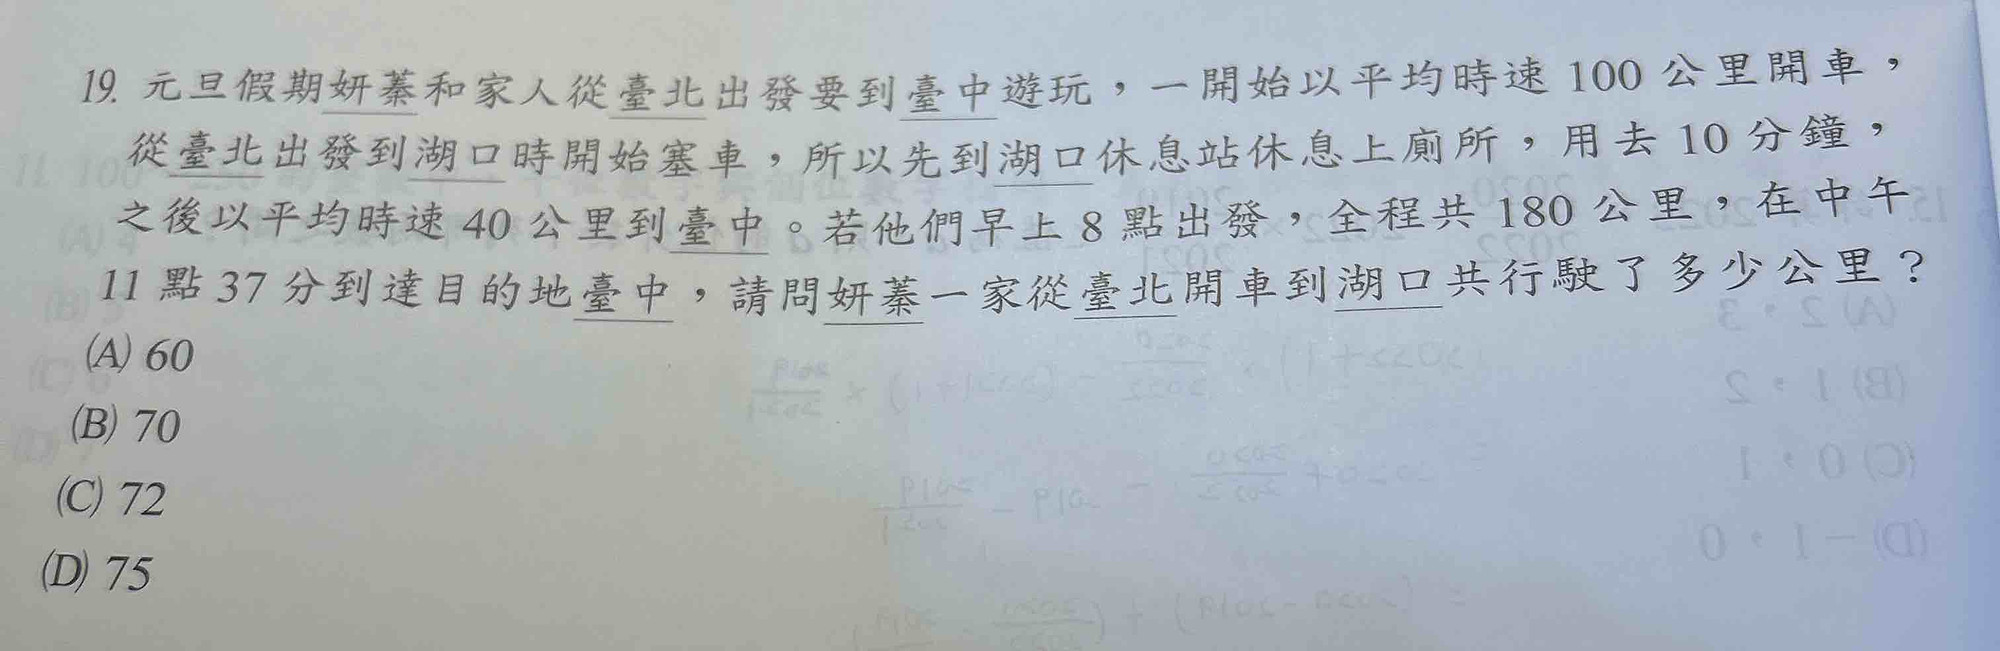 19. 元旦假期妍蓁和家人從臺北出發要到臺中遊玩，一開始以平均時速 100 公里開車，
從臺北出發到湖口時開始塞車，所以先到湖口休息站休息上廁所，用去 10 分鐘，
之後以平均時速 40 公里到臺中。若他們早上 8 點出發，全程共 180 公里，在中午
11 點 37 分到達目的地臺中，請問妍蓁一家從臺北開車到湖口共行駛了多少公里？
(A) 60
(B) 70
(C) 72
(D) 75